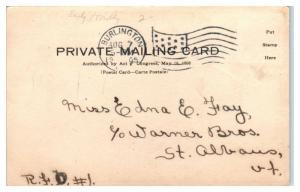 BURLINGTON
Put
Stamp
Here
PRIVATE MAILING CARD
Authorized by Act of Congress, May 19, 1898
(Postal Card—Carte Postale)
Miss Edna E. Fay,
c/o Warner Bros.
St. Albans,
Vt.
R.F.D. #1.